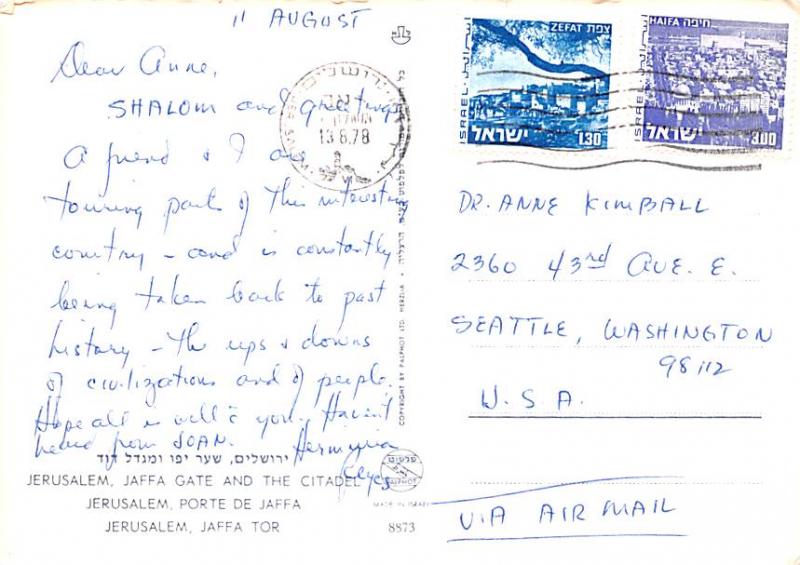 11 AUGUST
Dear Anne,
SHALOM and greetings
A friend & I are
touring parts of this interesting
country - and is constantly
being taken back to past
history - the ups & downs
of civilizations and of people.
Hope all is well c̄ you. Haven't
heard from JOAN. Hermyna
Keyes
ירושלים, שער יפו ומגדל דוד
JERUSALEM, JAFFA GATE AND THE CITADEL
JERUSALEM, PORTE DE JAFFA
JERUSALEM, JAFFA TOR
8873
MADE IN ISRAEL
פלפוט
PALPHOT
COPYRIGHT BY PALPHOT LTD. HERZLIA
13.8.78
ZEFAT צפת
ISRAEL
ישראל
1.30
HAIFA חיפה
ISRAEL
ישראל
3.00
DR. ANNE KIMBALL
2360 43rd AVE. E.
SEATTLE, WASHINGTON
98112
U.S.A.
VIA AIR MAIL